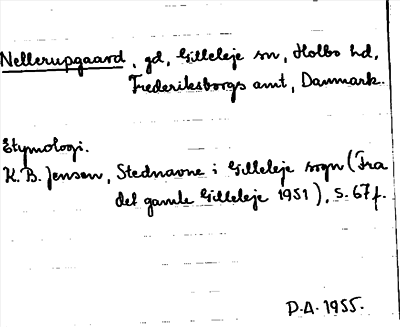 Nellerupgaard, gd, Gilleleje sn, Holbo hd,
Frederiksborgs amt, Danmark.
Etymologi.
K.B. Jensen, Stednavne i Gilleleje sogn (Fra
det gamle Gilleleje 1951), s. 67 f.
P.A. 1955.